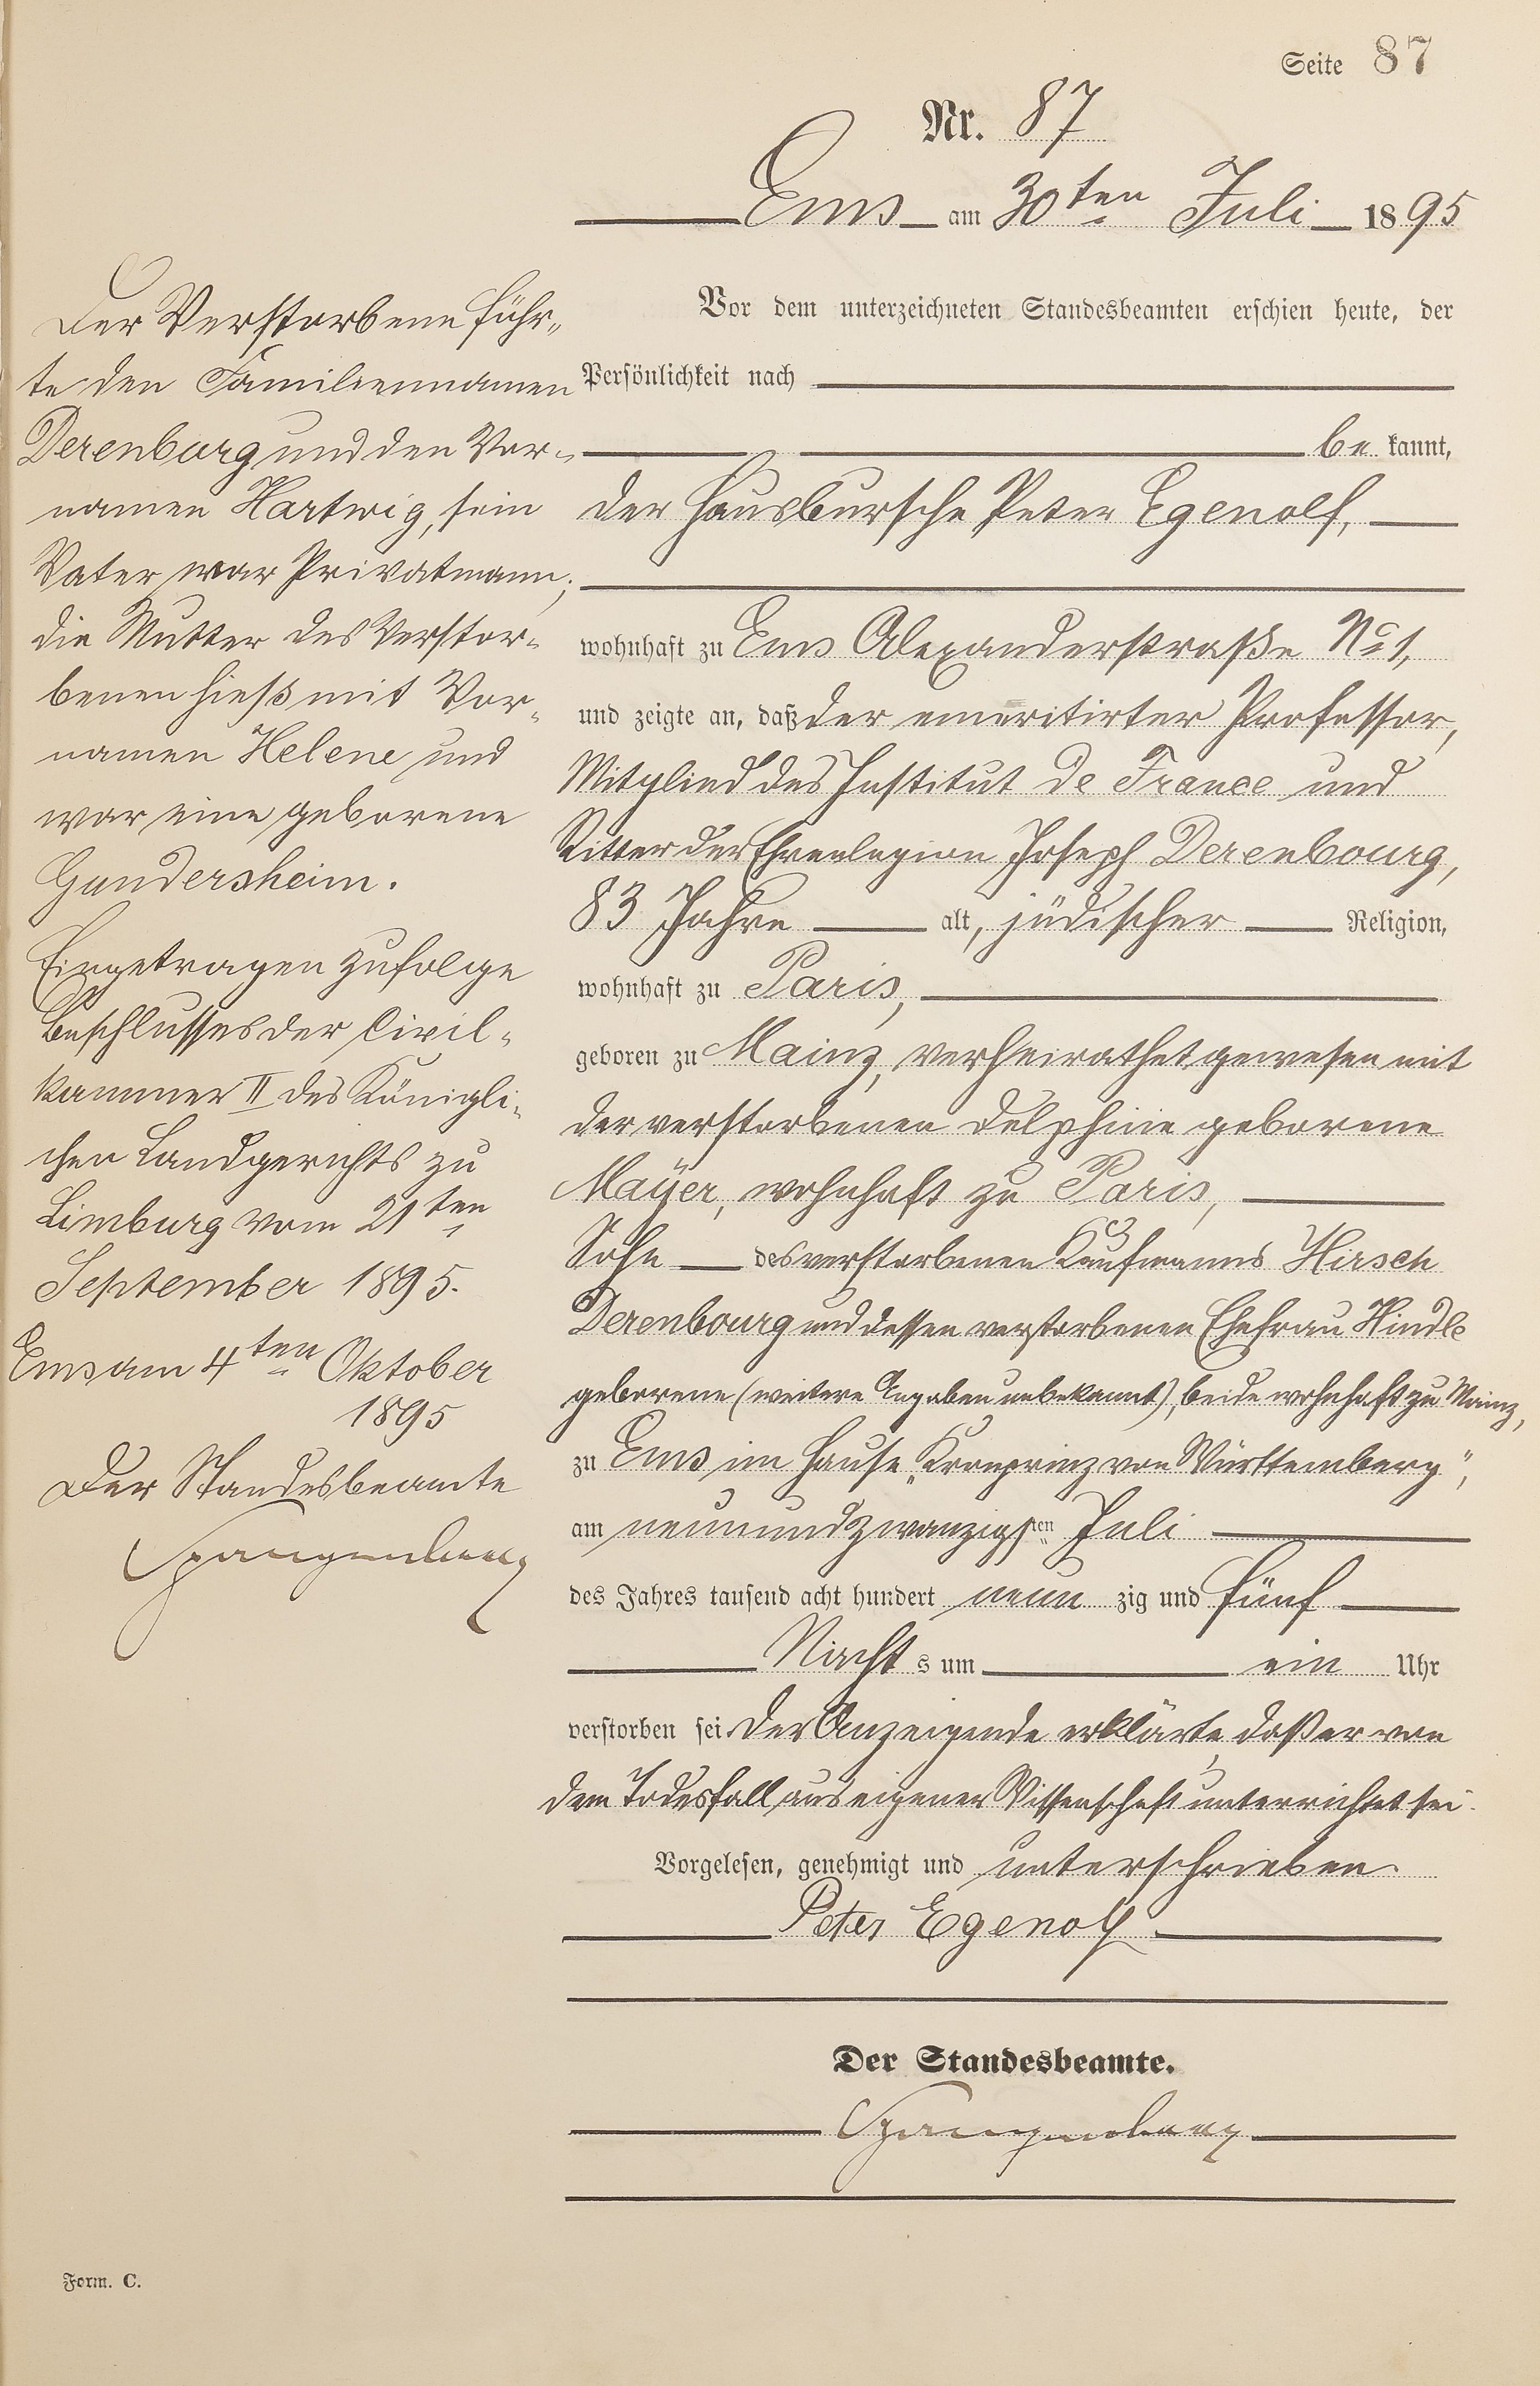 Seite 87
Nr. 87
Ems am 30ten Juli 1895
Vor dem unterzeichneten Standesbeamten erschien heute, der
Persönlichkeit nach
be kannt,
der Hausbursche Peter Egenolf,
wohnhaft zu Ems Alexanderstraße No 1,
und zeigte an, daß der emeritirter Professor,
Mitglied des Institut de France und
Ritter der Ehrenlegion Joseph Derenbourg,
83 Jahre alt, jüdischer Religion,
wohnhaft zu Paris,
geboren zu Mainz, verheirathet gewesen mit
der verstorbenen Delphine geborene
Mayer, wohnhaft zu Paris,
Sohn des verstorbenen Kaufmanns Hirsch
Derenbourg und dessen verstorbenen Ehefrau Hindle
geborene (weitere Angaben unbekannt), beide wohnhaft zu Mainz,
zu Ems im Hause „Kronprinz von Württemberg",
am neunundzwanzigsten Juli
des Jahres tausend acht hundert neun zig und fünf
Nacht s um ein Uhr
verstorben sei. Der Anzeigende erklärte, daß er von
dem Todesfall aus eigener Wissenschaft unterrichtet sei.
Vorgelesen, genehmigt und unterschrieben.
Peter Egenolf
Der Standesbeamte.
Spangenberg
Der Verstorbene führ-
te den Familiennamen
Derenburg und den Vor-
namen Hartwig, sein
Vater war Privatmann;
die Mutter des Verstor-
benen hieß mit Vor-
namen Helene und
war eine geborene
Gundersheim.
Eingetragen zufolge
Beschlusses der Civil-
kammer II des Königli-
chen Landgerichts zu
Limburg vom 21ten
September 1895.
Ems am 4ten Oktober
1895
Der Standesbeamte
Spangenberg
Form. C.